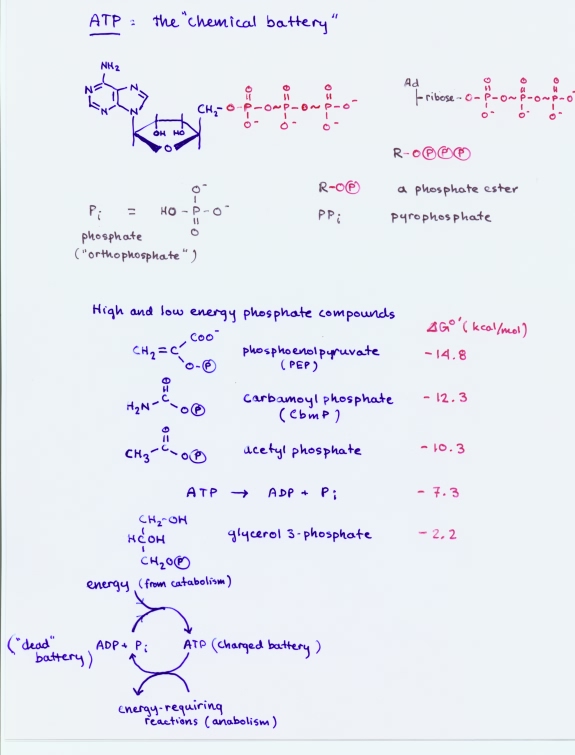 ATP : the "chemical battery"
NH2
N N
N N
CH2-O-P-O~P-O~P-O-
O O O
O- O- O-
OH HO
O
Ad
ribose-O-P-O~P-O~P-O
O O O
O- O- O-
R-OⓅⓅⓅ
Pi = HO-P-O-
O-
O
phosphate
("orthophosphate")
R-OⓅ a phosphate ester
PPi pyrophosphate
High and low energy phosphate compounds
ΔG°' (kcal/mol)
COO-
CH2=C phosphoenolpyruvate -14.8
O-Ⓟ (PEP)
O
H2N-C-OⓅ Carbamoyl phosphate -12.3
(CbmP)
O
CH3-C-OⓅ acetyl phosphate -10.3
ATP → ADP + Pi -7.3
CH2-OH
HCOH glycerol 3-phosphate -2.2
CH2OⓅ
energy (from catabolism)
("dead" battery) ADP + Pi ATP (charged battery)
energy-requiring
reactions (anabolism)